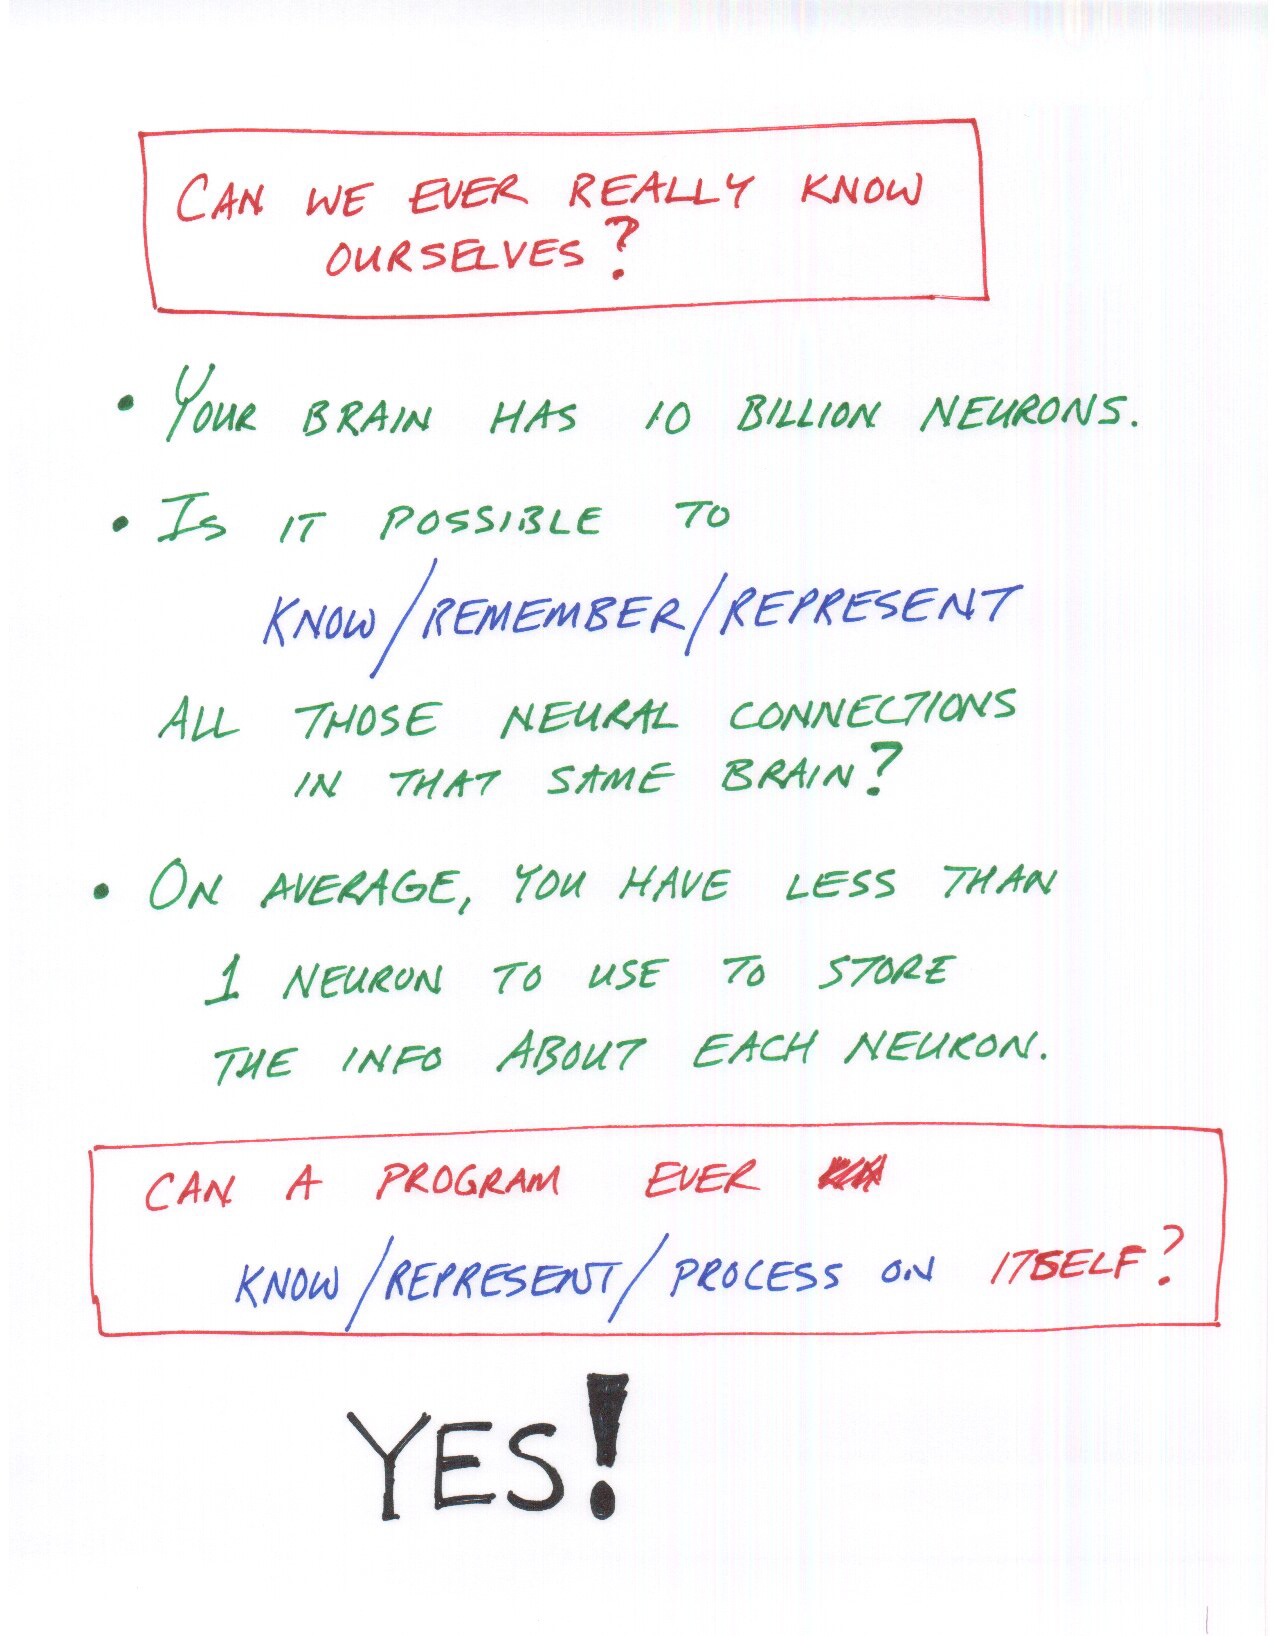 CAN WE EVER REALLY KNOW
OURSELVES?
• YOUR BRAIN HAS 10 BILLION NEURONS.
• IS IT POSSIBLE TO
KNOW/REMEMBER/REPRESENT
ALL THOSE NEURAL CONNECTIONS
IN THAT SAME BRAIN?
• ON AVERAGE, YOU HAVE LESS THAN
1 NEURON TO USE TO STORE
THE INFO ABOUT EACH NEURON.
CAN A PROGRAM EVER
KNOW/REPRESENT/PROCESS ON ITSELF?
YES!